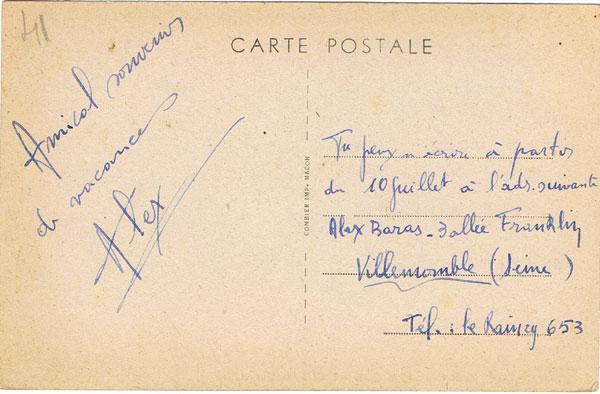 41
CARTE POSTALE
Amical souvenir
de vacances
Alex
COMBIER IMP. MACON
Tu peux m'écrire à partir
du 10 Juillet à l'ads. suivante
Alex Baras - 3 allée Franklin
Villemomble (Seine)
Tél. : le Raincy 653